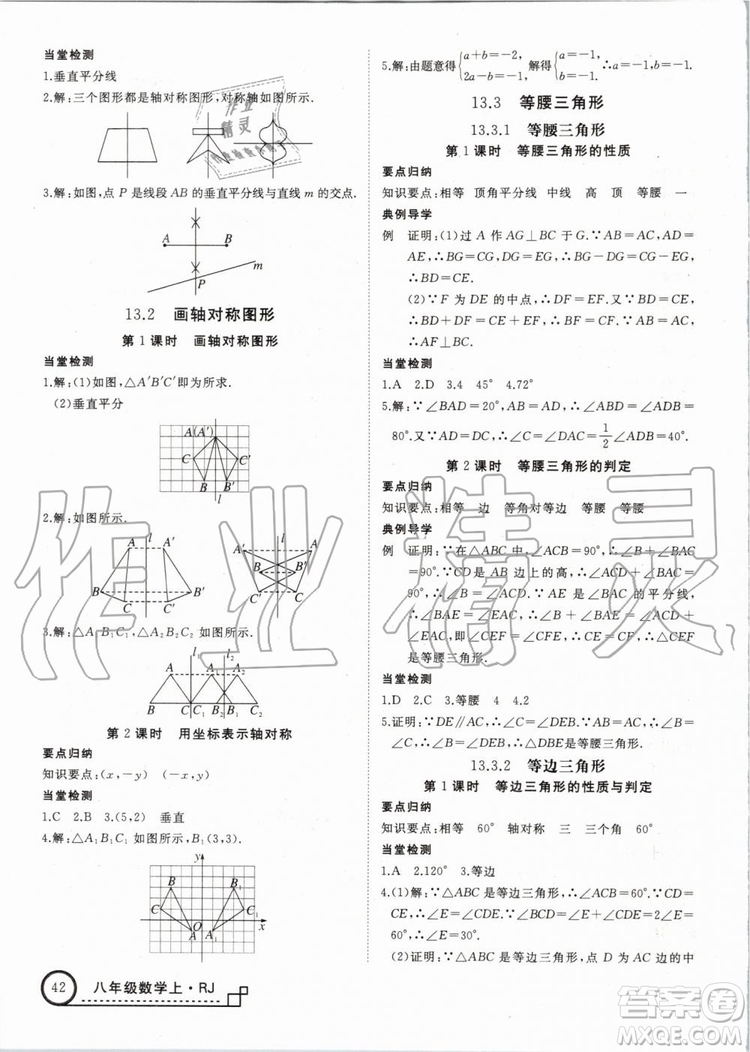 当堂检测
1.垂直平分线
2.解：三个图形都是轴对称图形，对称轴如图所示.
3.解：如图，点 P 是线段 AB 的垂直平分线与直线 m 的交点.
A B
m
P
13.2 画轴对称图形
第 1 课时 画轴对称图形
当堂检测
1.解：(1)如图，△A′B′C′即为所求.
(2)垂直平分
A(A′)
C C′
B B′
l
2.解：如图所示.
l
A A′
B B′
C C′
l
A′ A
B B′
C′ C
3.解：△A₁B₁C₁，△A₂B₂C₂ 如图所示.
l₁ l₂
A A₁ A₂
B C C₁ B₂ B₁ C₂
第 2 课时 用坐标表示轴对称
要点归纳
知识要点：(x，-y) (-x，y)
当堂检测
1.C 2.B 3.(5，2) 垂直
4.解：△A₁B₁C₁ 如图所示，B₁(3，3).
y
B B₁
C C₁
O
A A₁ x
42 八年级数学上·RJ
5.解：由题意得{a+b=-2，2a-b=-1，解得{a=-1，b=-1. ∴a=-1，b=-1.
13.3 等腰三角形
13.3.1 等腰三角形
第 1 课时 等腰三角形的性质
要点归纳
知识要点：相等 顶角平分线 中线 高 顶 等腰 一
典例导学
例 证明：(1)过 A 作 AG⊥BC 于 G.∵AB=AC，AD=AE，∴BG=CG，DG=EG，∴BG-DG=CG-EG，
∴BD=CE.
(2)∵F 为 DE 的中点，∴DF=EF.∵BD=CE，
∴BD+DF=CE+EF，∴BF=CF.∵AB=AC，∴
AF⊥BC.
当堂检测
1.A 2.D 3.4 45° 4.72°
5.解：∵∠BAD=20°，AB=AD，∴∠ABD=∠ADB=
80°.又∵AD=DC，∴∠C=∠DAC=1/2∠ADB=40°.
第 2 课时 等腰三角形的判定
要点归纳
知识要点：相等 边 等角对等边 等腰 等腰
典例导学
例 证明：∵在△ABC 中，∠ACB=90°，∴∠B+∠BAC
=90°.∵CD是 AB 边上的高，∴∠ACD+∠BAC=
90°，∴∠B=∠ACD.∵AE 是∠BAC 的平分线，
∴∠BAE=∠EAC，∴∠B+∠BAE=∠ACD+
∠EAC，即∠CEF=∠CFE，∴CF=CE，∴△CEF
是等腰三角形.
当堂检测
1.D 2.C 3.等腰 4 4.2
5.证明：∵DE∥AC，∴∠C=∠DEB.∵AB=AC，∴∠B
=∠C，∴∠B=∠DEB，∴△DBE是等腰三角形.
13.3.2 等边三角形
第 1 课时 等边三角形的性质与判定
要点归纳
知识要点：相等 60° 轴对称 三 三个角 60°
当堂检测
1.A 2.120° 3.等边
4.(1)解：∵△ABC 是等边三角形，∴∠ACB=60°.∵CD=
CE，∴∠CDE=∠E.∵∠BCD=∠CDE+∠E=2∠E=
60°，∴∠E=30°.
(2)证明：∵△ABC 是等边三角形，点 D 为AC 边的中
作业精灵
答案圈
MXQE.COM